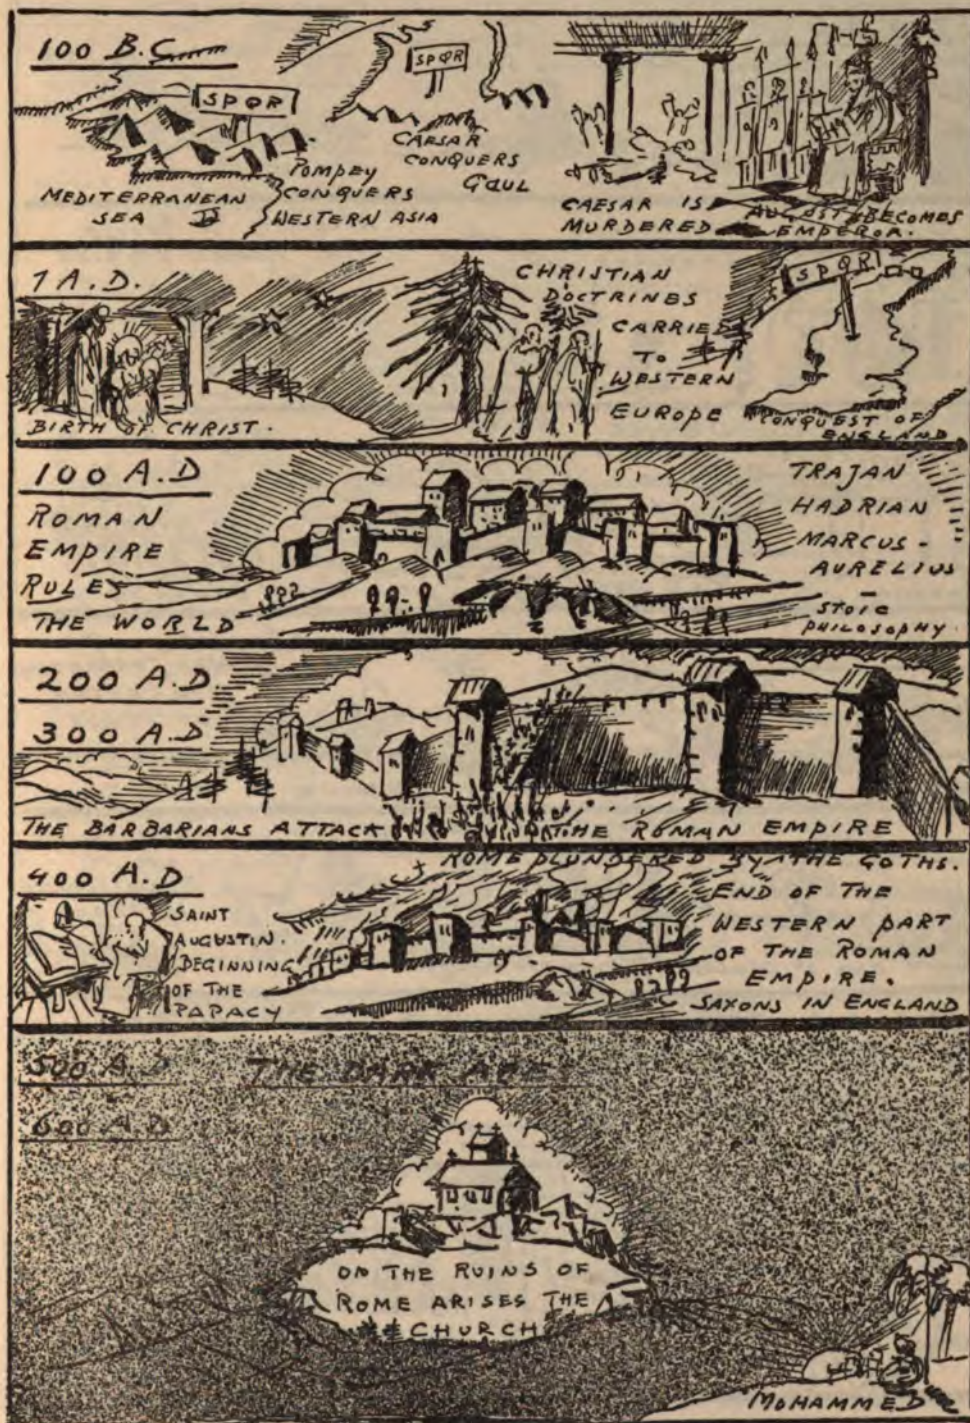 100 B.C.
SPQR
SPQR
MEDITERRANEAN
SEA
POMPEY
CONQUERS
WESTERN ASIA
CAESAR
CONQUERS
GAUL
CAESAR IS
MURDERED
BECOMES
EMPEROR.
1 A.D.
BIRTH OF CHRIST.
CHRISTIAN
DOCTRINES
CARRIED
TO
WESTERN
EUROPE
SPQR
CONQUEST OF
ENGLAND
100 A.D
ROMAN
EMPIRE
RULES
THE WORLD
TRAJAN
HADRIAN
MARCUS-
AURELIUS
-
STOIC
PHILOSOPHY.
200 A.D
300 A.D
THE BARBARIANS ATTACK THE ROMAN EMPIRE
400 A.D
SAINT
AUGUSTIN.
BEGINNING
OF THE
PAPACY
ROME PLUNDERED BY THE GOTHS.
END OF THE
WESTERN PART
OF THE ROMAN
EMPIRE.
SAXONS IN ENGLAND
500 A.D
THE DARK AGE
600 A.D
ON THE RUINS OF
ROME ARISES THE
CHURCH
MOHAMMED